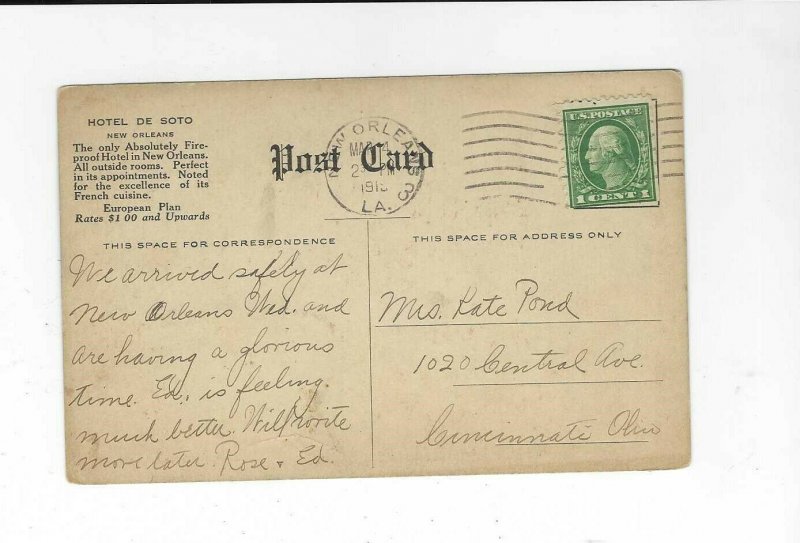 HOTEL DE SOTO
NEW ORLEANS
The only Absolutely Fire-
proof Hotel in New Orleans.
All outside rooms. Perfect
in its appointments. Noted
for the excellence of its
French cuisine.
European Plan
Rates $1 00 and Upwards
Post Card
NEW ORLEANS
LA.
U.S. POSTAGE
1 CENT 1
THIS SPACE FOR CORRESPONDENCE
THIS SPACE FOR ADDRESS ONLY
We arrived safely at
New Orleans Wed. and
are having a glorious
time. Ed. is feeling
much better. Will write
more later. Rose + Ed.
Mrs. Kate Pond
1020 Central Ave.
Cincinnati Ohio